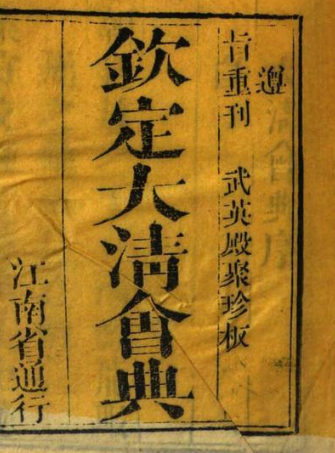 遵
旨重刊　武英殿聚珍板
欽定大清會典
江南省通行